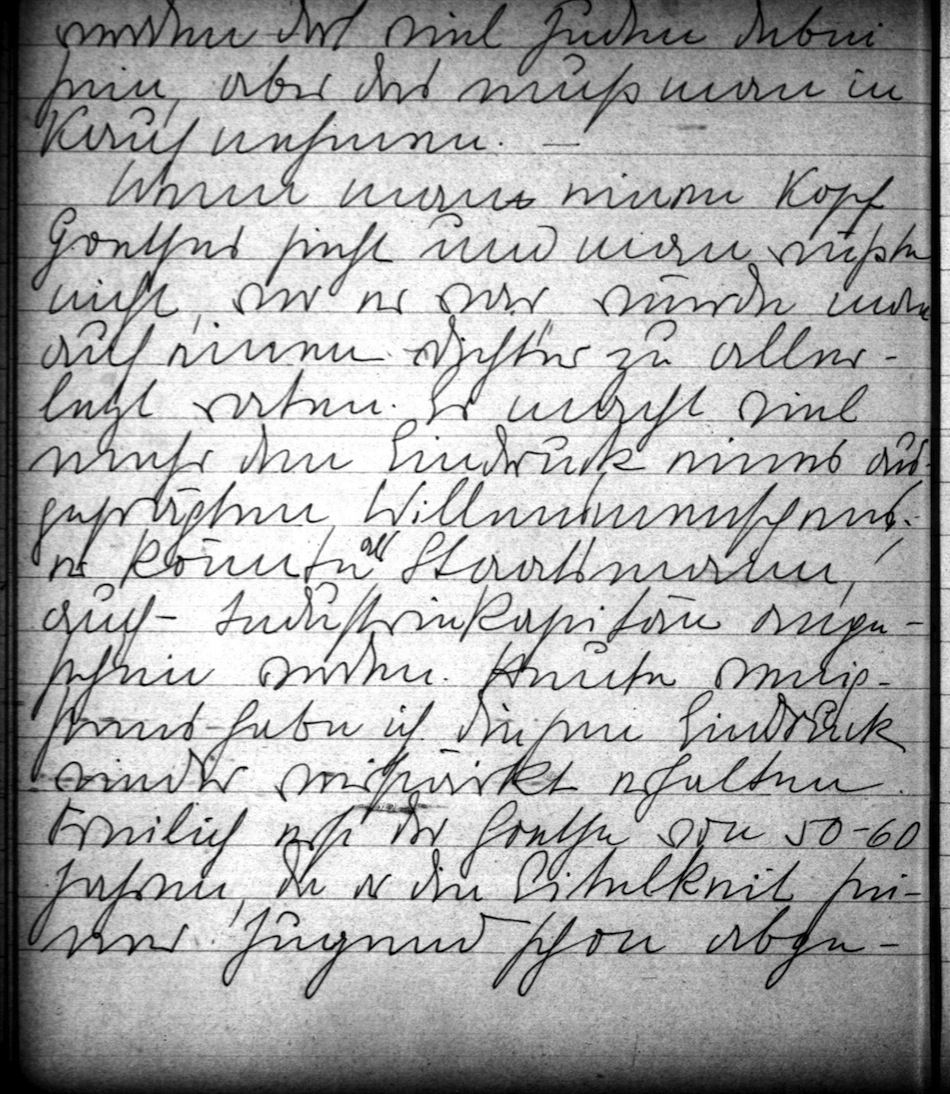 werden dort viel Juden dabei
sein, aber das muß man in
Kauf nehmen. —
Wenn man einen Kopf
Goethes sieht und man wüßte
nicht, wer er war, würde man
auf einen Dichter zu aller-
letzt raten. Er macht viel
mehr den Eindruck eines aus-
geprägten Willensmenschen,
er könnte als Staatsmann,
auch Industriekapitän ange-
sehen werden. Heute
habe ich diesen Eindruck
wieder verstärkt erhalten.
Freilich erst der Goethe von 50-60
Jahren, da er die Eitelkeit sei-
ner Jugend schon abge-